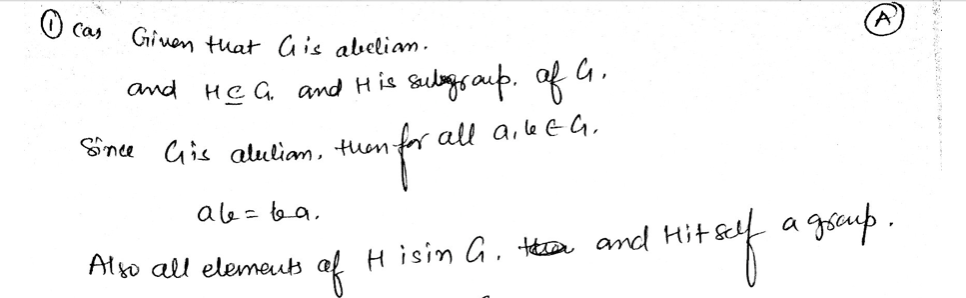 ① (a) Given that G is abelian. Ⓐ
and H ⊆ G. and H is subgroup. of G.
Since G is abelian, then for all a, b ∈ G.
ab = ba.
Also all elements of H is in G. and H it self a group.